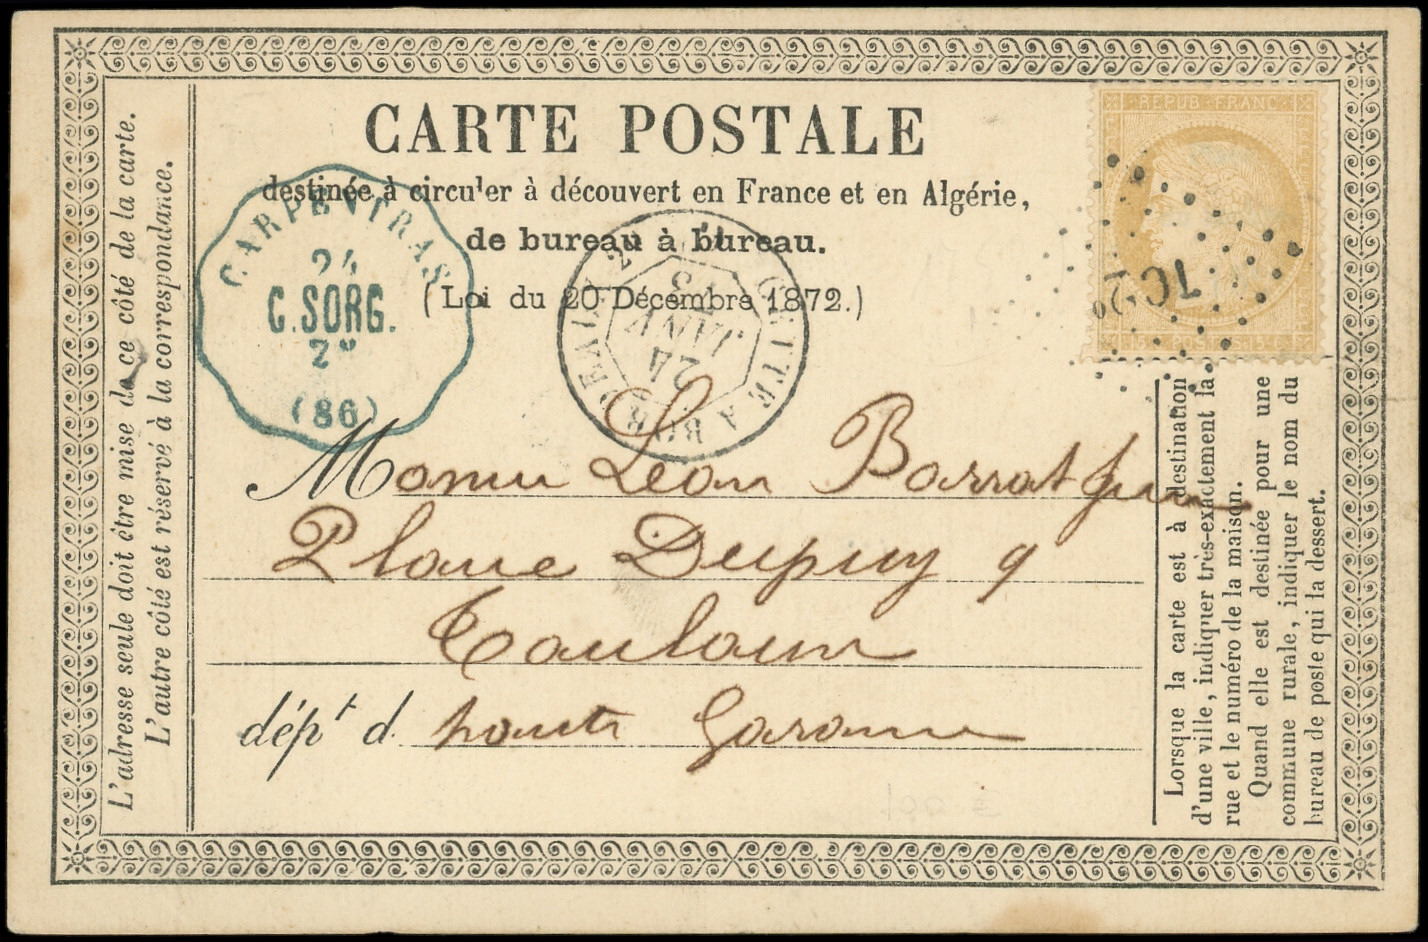 CARTE POSTALE
destinée à circuler à découvert en France et en Algérie,
de bureau à bureau.
(Loi du 20 Décembre 1872.)
REPUB FRANC
15 c. POSTES 15 c.
TC 2°
CARPENTRAS
24
C.SORG.
2°
(86)
CETTE A BOR
24
JANV
Monsieur Léon Barrat
Place Dupuy 9
Toulouse
dépt d. haute Garonne
L'adresse seule doit être mise de ce côté de la carte.
L'autre côté est réservé à la correspondance.
Lorsque la carte est à destination
d'une ville, indiquer très-exactement la
rue et le numéro de la maison.
Quand elle est destinée pour une
commune rurale, indiquer le nom du
bureau de poste qui la dessert.